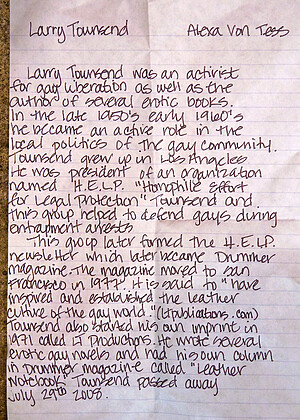 Larry Townsend Alexa Von Tess
Larry Townsend was an activist
for gay liberation as well as the
author of several erotic books.
In the late 1950's early 1960's
he became an active role in the
local politics of the gay community.
Townsend grew up in Los Angeles
He was president of an organization
named "H.E.L.P. "Homophile Effort
for Legal Protection" Townsend and
this group helped to defend gays during
entrapment arrests
This group later formed the H.E.L.P.
newsletter which later became Drummer
magazine. The magazine moved to San
Francisco in 1977. It is said to "have
inspired and established the leather
culture of the gay world." (LTpublications.com)
Townsend also started his own imprint in
1971 called LT Productions. He wrote several
erotic gay novels and had his own column
in Drummer magazine called "Leather
Notebook" Townsend passed away
July 29th 2008.